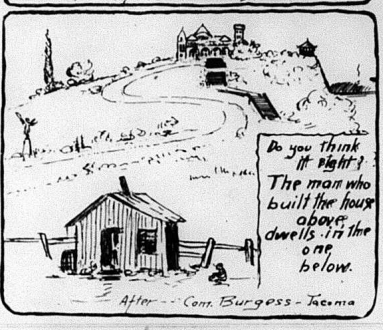 Do you think
it right?
The man who
built the house
above,
dwells in the
one
below.
After - Com. Burgess - Tacoma